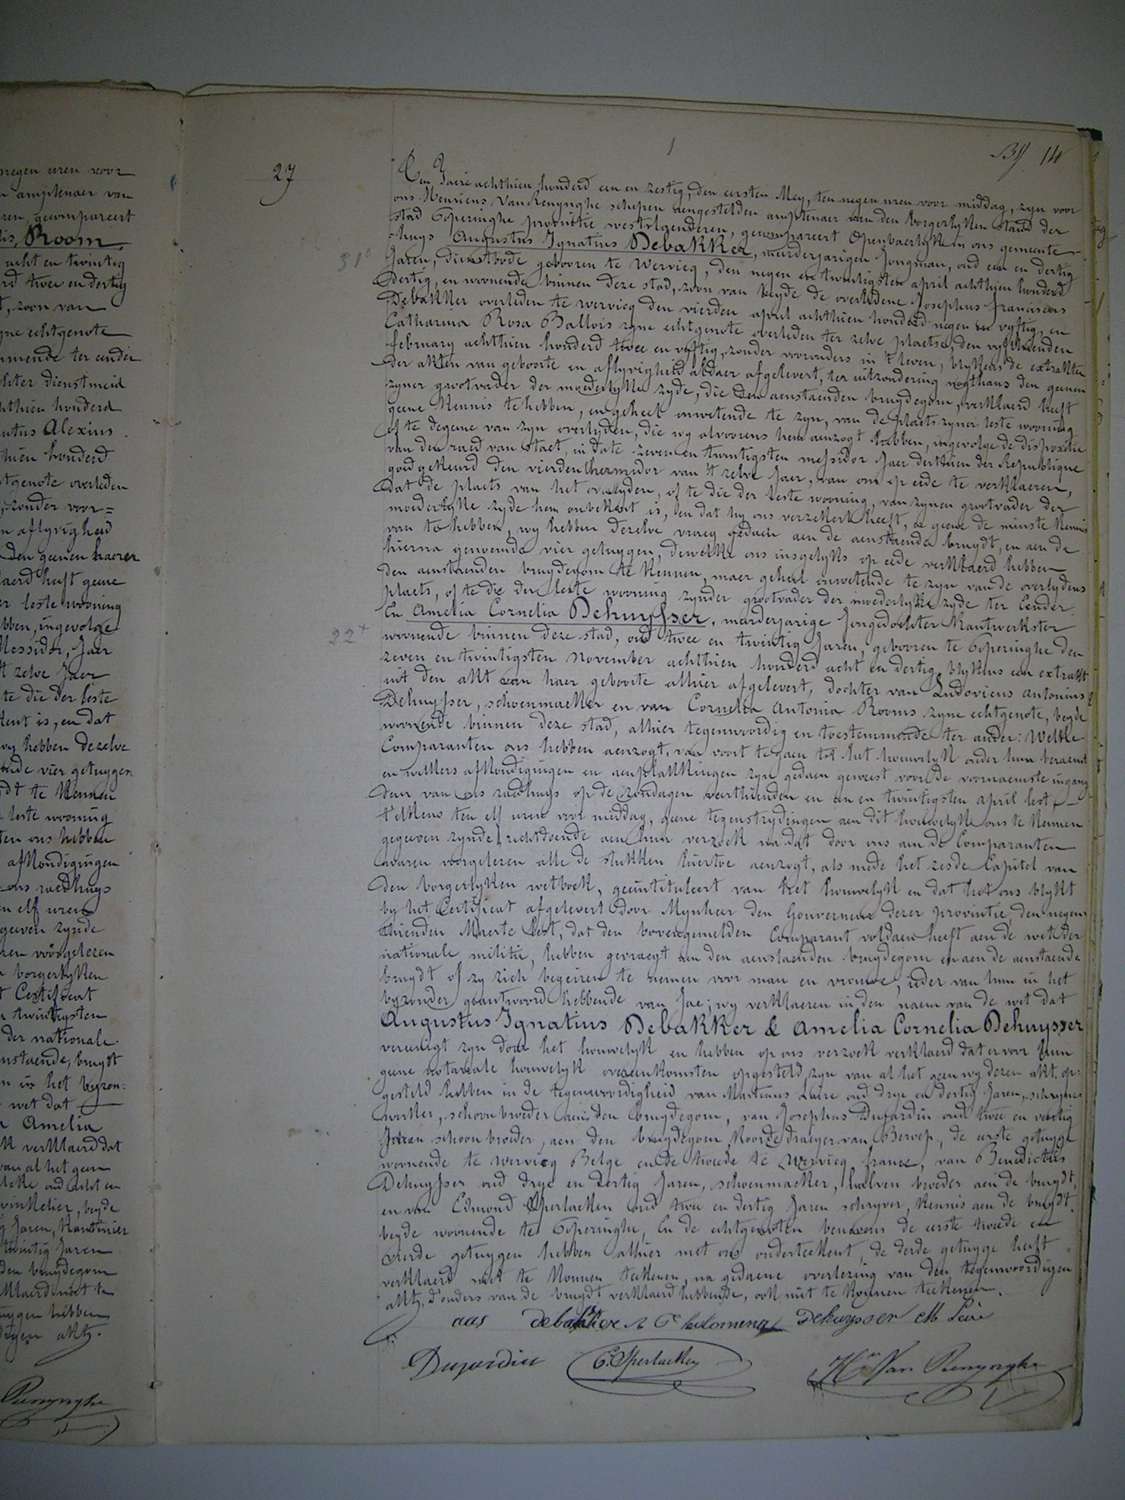 negen uren voor
amptenaer van
ren, gecompareert
Room
acht en twintig
rd twee en dertig
zoon van
yne echtgenote
mmende ter ander
chter dienstmeid
chthien honderd
Alexius
thien honderd
htgenote overleden
zonder voor=
n aflyvigheid
den geenen haerer
laerd heeft geene
er leste wooning
bben, ingevolge
Messidor, Jaer
t zelve Jaer
te die der leste
kent is, en dat
wy hebben dezelve
ende vier getuygen
dt te Kennen
leste wooning
ten ons hebben
afkondigingen
ons raedhuys
en elf uren
gegeven zynde
aren voorgelezen
n borgerlyken
t Certificat
n twintigsten
der nationale
enstaende, bruydt
n in het byzon=
wet dat
n Amelia
k verklaerd dat
van al het geen
oud acht en
winkelier, beyde
Jaren, Kantinier
twintig Jaren
den bruydegom
klaerd niet te
tuygen hebben
digen akt.
Renynghe
1
By 14
27
Ten Jaere achthien honderd een en zestig, den eersten Mey, ten negen uren voor middag, zyn voor
ons Henricus Van Renynghe schepen aengestelden amptenaer van den borgerlyken stand der
stad Poperinghe provintie westvlaenderen, gecompareert Openbaerlyk in ons gemeente
huys Augustus Ignatius Debakker, meerderjarigen Jongman, oud een en dertig
31
Jaren, dienstbode gebooren te Wervicq, den negen en twintigsten april achthien honderd
dertig, en woonende binnen deze stad, zoon van beyde de overledene Josephus franciscus
Debakker overleden te wervicq den vierden april achthien honderd negen en vyftig, en
Catharina Rosa Ballois zyne echtgenote overleden ter zelve plaetse den vyfthienden
february achthien honderd twee en vyftig, zonder voorouders in 't leven, blykens de extrakten
der akten van geboorte en aflyvigheid aldaer afgelevert, ter uitzondering nogthans den geenen
zyner grootvader der moederlyke zyde, die den aenstaenden bruydegom, verklaerd heeft
geene Kennis te hebben, en geheel onwetende te zyn, van de plaets zyner leste wooning
of te degene van zyn overlyden, die wy alvoorens hem aenzogt hebben, ingevolge de dispositie
van den raed van staet, in date zeven en twintigsten messidor Jaer derthien der Republique
goedgekeurd den vierden thermidor van 't zelve Jaer, van ons op eede te verklaeren,
dat de plaets van het overlyden, of te die der leste wooning, van zynen grootvader der
moederlyke zyde hem onbekent is, en dat hy ons verzekert heeft, er geene de minste Kennis
van te hebben, wy hebben dezelve vraeg gedaen aen de aenstaende bruydt, en aen de
hierna genoemde vier getuygen, dewelke ons insgelyks op eede verklaerd hebben
den aenstaenden bruydegom te Kennen, maer geheel onwetende te zyn van de overlydens
plaets, of te die der leste wooning zynder grootvader der moederlyke zyde ter Eender
En Amelia Cornelia Dehuysser, meerderjarige Jongedochter Kantwerkster
22
woonende binnen deze stad, oud twee en twintig Jaren, gebooren te Poperinghe den
zeven en twintigsten November achthien honderd acht en dertig, blykens een extrakt
uit den akt van haer geboorte alhier afgelevert, dochter van Ludovicus antonius
Dehuysser, schoenmaeker en van Cornelia Antonia Rooms zyne echtgenote, beyde
woonende binnen deze stad, alhier tegenwoordig en toestemmende ter ander: Welke
Comparanten ons hebben aenzogt, van voort te gaen tot het houwelyk onder hun beraemt
en welkers afkondigingen en aenplakkingen zyn gedaen geweest voor de voornaemste ingang
deur van ons raedhuys op de zondagen veerthienden en een en twintigsten april lest,
telkens ten elf uren voor middag, geene tegenstrydingen aen dit houwelyk ons te Kennen
gegeven zynde, rechtdoende aen hun verzoek na dat door ons aen de Comparanten
waren voorgelezen alle de stukken hiertoe aenzogt, als mede het zesde Capitel van
den borgerlyken wetboek, geintituleert van het houwelyk en dat het ons blykt
by het Certificat afgelevert door Mynheer den Gouverneur dezer provintie, den negen
thienden Maerte lest, dat den bovengemelden Comparant voldaen heeft aen de wet der
nationale militie, hebben gevraegt aen den aenstaenden bruydegom en aen de aenstaende
bruydt of zy zich begeiren te nemen voor man en vrouwe, ieder van hun in het
byzonder geantwoord hebbende van Jae; wy verklaeren in den naem van de wet dat
Augustus Ignatius Debakker & Amelia Cornelia Dehuysser
vereenigt zyn door het houwelyk en hebben op ons verzoek verklaerd dat er voor hun
gene notariale houwelyk overeenkomsten opgesteld zyn van al het geen wy dezen akt op=
gesteld hebben in de tegenwoordigheid van Martinus Leire oud drye en dertig Jaren, schryn=
werker, schoonbroeder aen den bruydegom, van Josephus Dujardin oud twee en veertig
Jaren schoonbroeder, aen den bruydegom, Koordedraeyer van Beroep, de eerste getuyge
woonende te wervicq Belge en de tweede te Wervicq france, van Benedictus
Dehuysser oud drye en dertig Jaren, schoenmaeker, halven broeder aen de bruydt,
en van Edmond Sperlaeken oud twee en dertig Jaren schryver, Kennis aen de bruydt
beyde woonende te Poperinghe, En de echtgenoten benevens de eerste tweede en
vierde getuygen hebben alhier met ons onderteekent, de derde getuyge heeft
verklaerd niet te Konnen teekenen, na gedaene overlezing van den tegenwoordigen
akt, d'ouders van de bruydt verklaerd hebbende, ook niet te Konnen teekenen.
debakker Dehuysser M Leire
Dujardin E. Sperlaeken Hri Van Renynghe